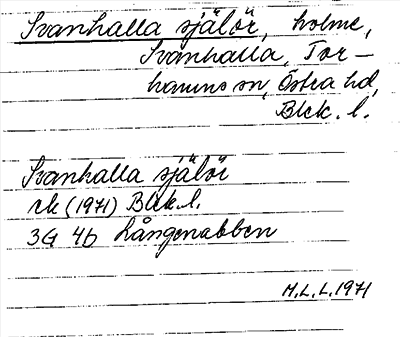 Svanhalla själör, holme,
Svanhalla, Tor-
hamns sn, Östra hd,
Blek. l.
Svanhalla själör
rk (1971) Blek. l.
3G 4b Långenabben
M.L.L. 1971